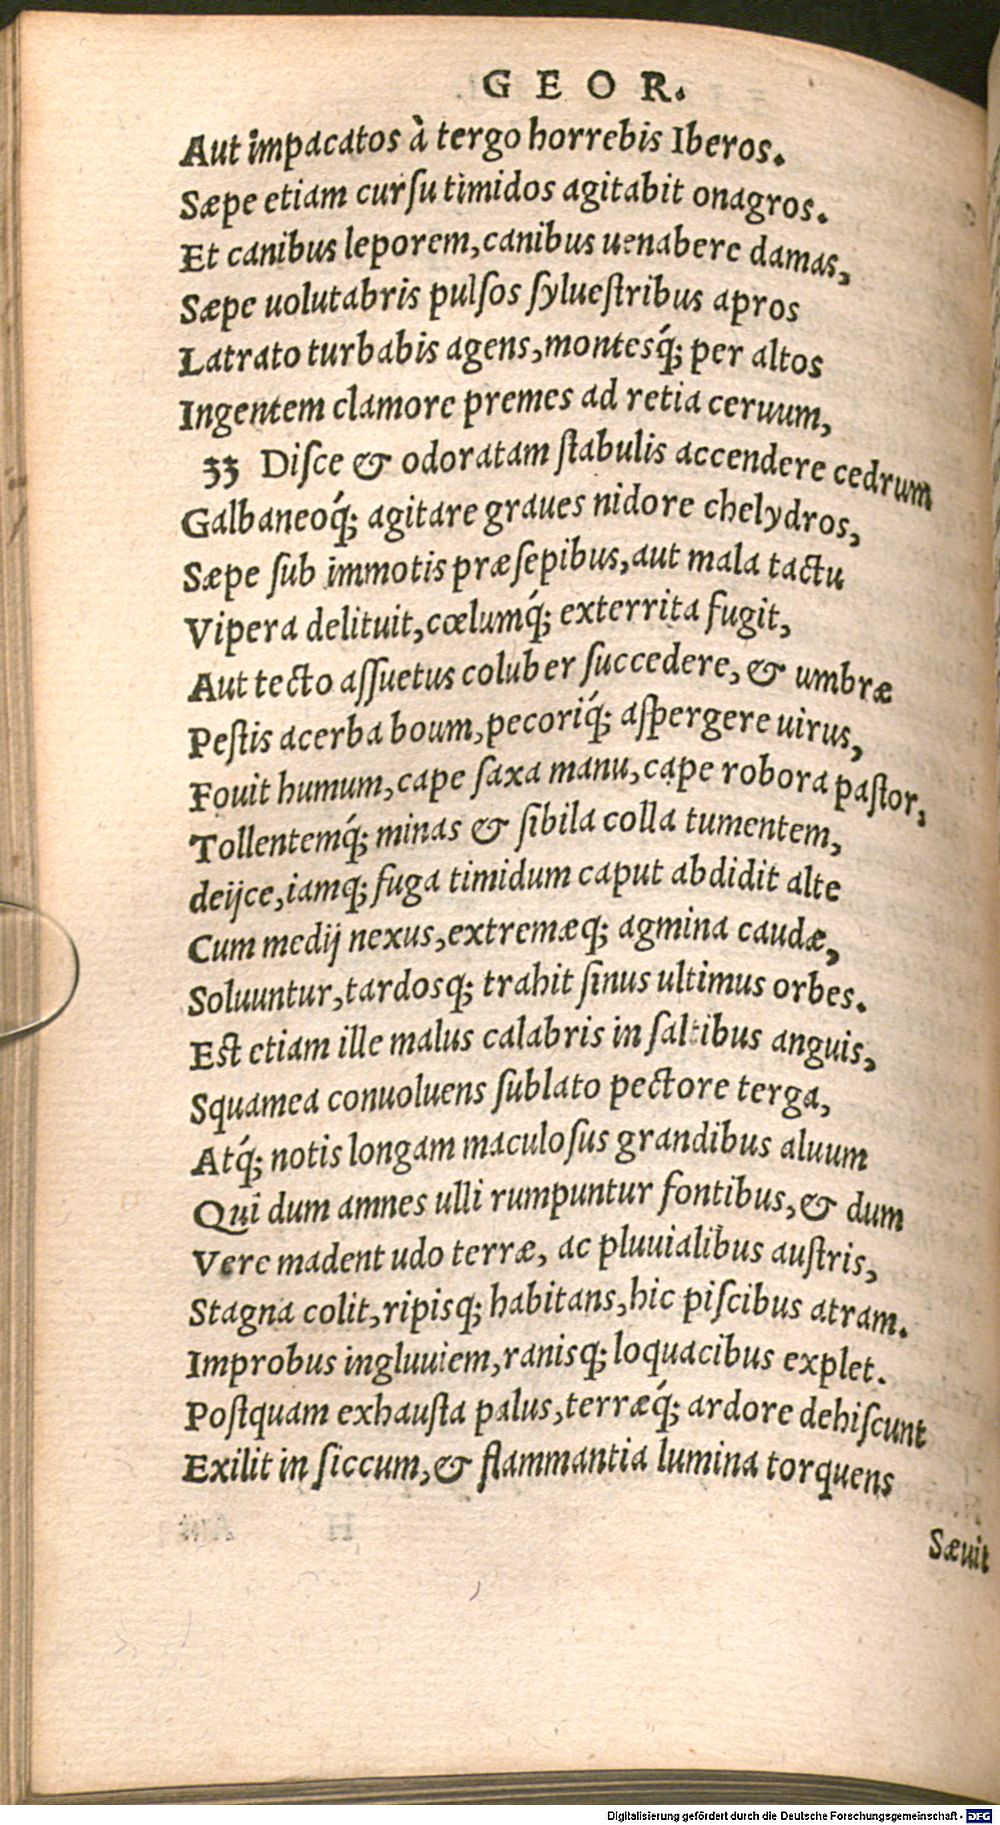 GEOR.
Aut impacatos à tergo horrebis Iberos.
Sæpe etiam curſu timidos agitabit onagros.
Et canibus leporem, canibus uenabere damas,
Sæpe uolutabris pulſos ſylueſtribus apros
Latrato turbabis agens, montesq́; per altos
Ingentem clamore premes ad retia ceruum,
33 Diſce & odoratam ſtabulis accendere cedrum
Galbaneoq́; agitare graues nidore chelydros,
Sæpe ſub immotis præſepibus, aut mala tactu
Vipera delituit, cœlumq́; exterrita fugit,
Aut tecto aſſuetus coluber ſuccedere, & umbræ
Peſtis acerba boum, pecoriq́; aſpergere uirus,
Fouit humum, cape ſaxa manu, cape robora paſtor,
Tollentemq́; minas & ſibila colla tumentem,
deijce, iamq; fuga timidum caput abdidit alte
Cum medij nexus, extremæq; agmina caudæ,
Soluuntur, tardosq; trahit ſinus ultimus orbes.
Eſt etiam ille malus calabris in ſaltibus anguis,
Squamea conuoluens ſublato pectore terga,
Atq́; notis longam maculoſus grandibus aluum
Qui dum amnes ulli rumpuntur fontibus, & dum
Vere madent udo terræ, ac pluuialibus auſtris,
Stagna colit, ripisq; habitans, hic piſcibus atram.
Improbus ingluuiem, ranisq; loquacibus explet.
Poſtquam exhauſta palus, terræq́; ardore dehiſcunt
Exilit in ſiccum, & flammantia lumina torquens
Sæuit
Digitalisierung gefördert durch die Deutsche Forschungsgemeinschaft - DFG